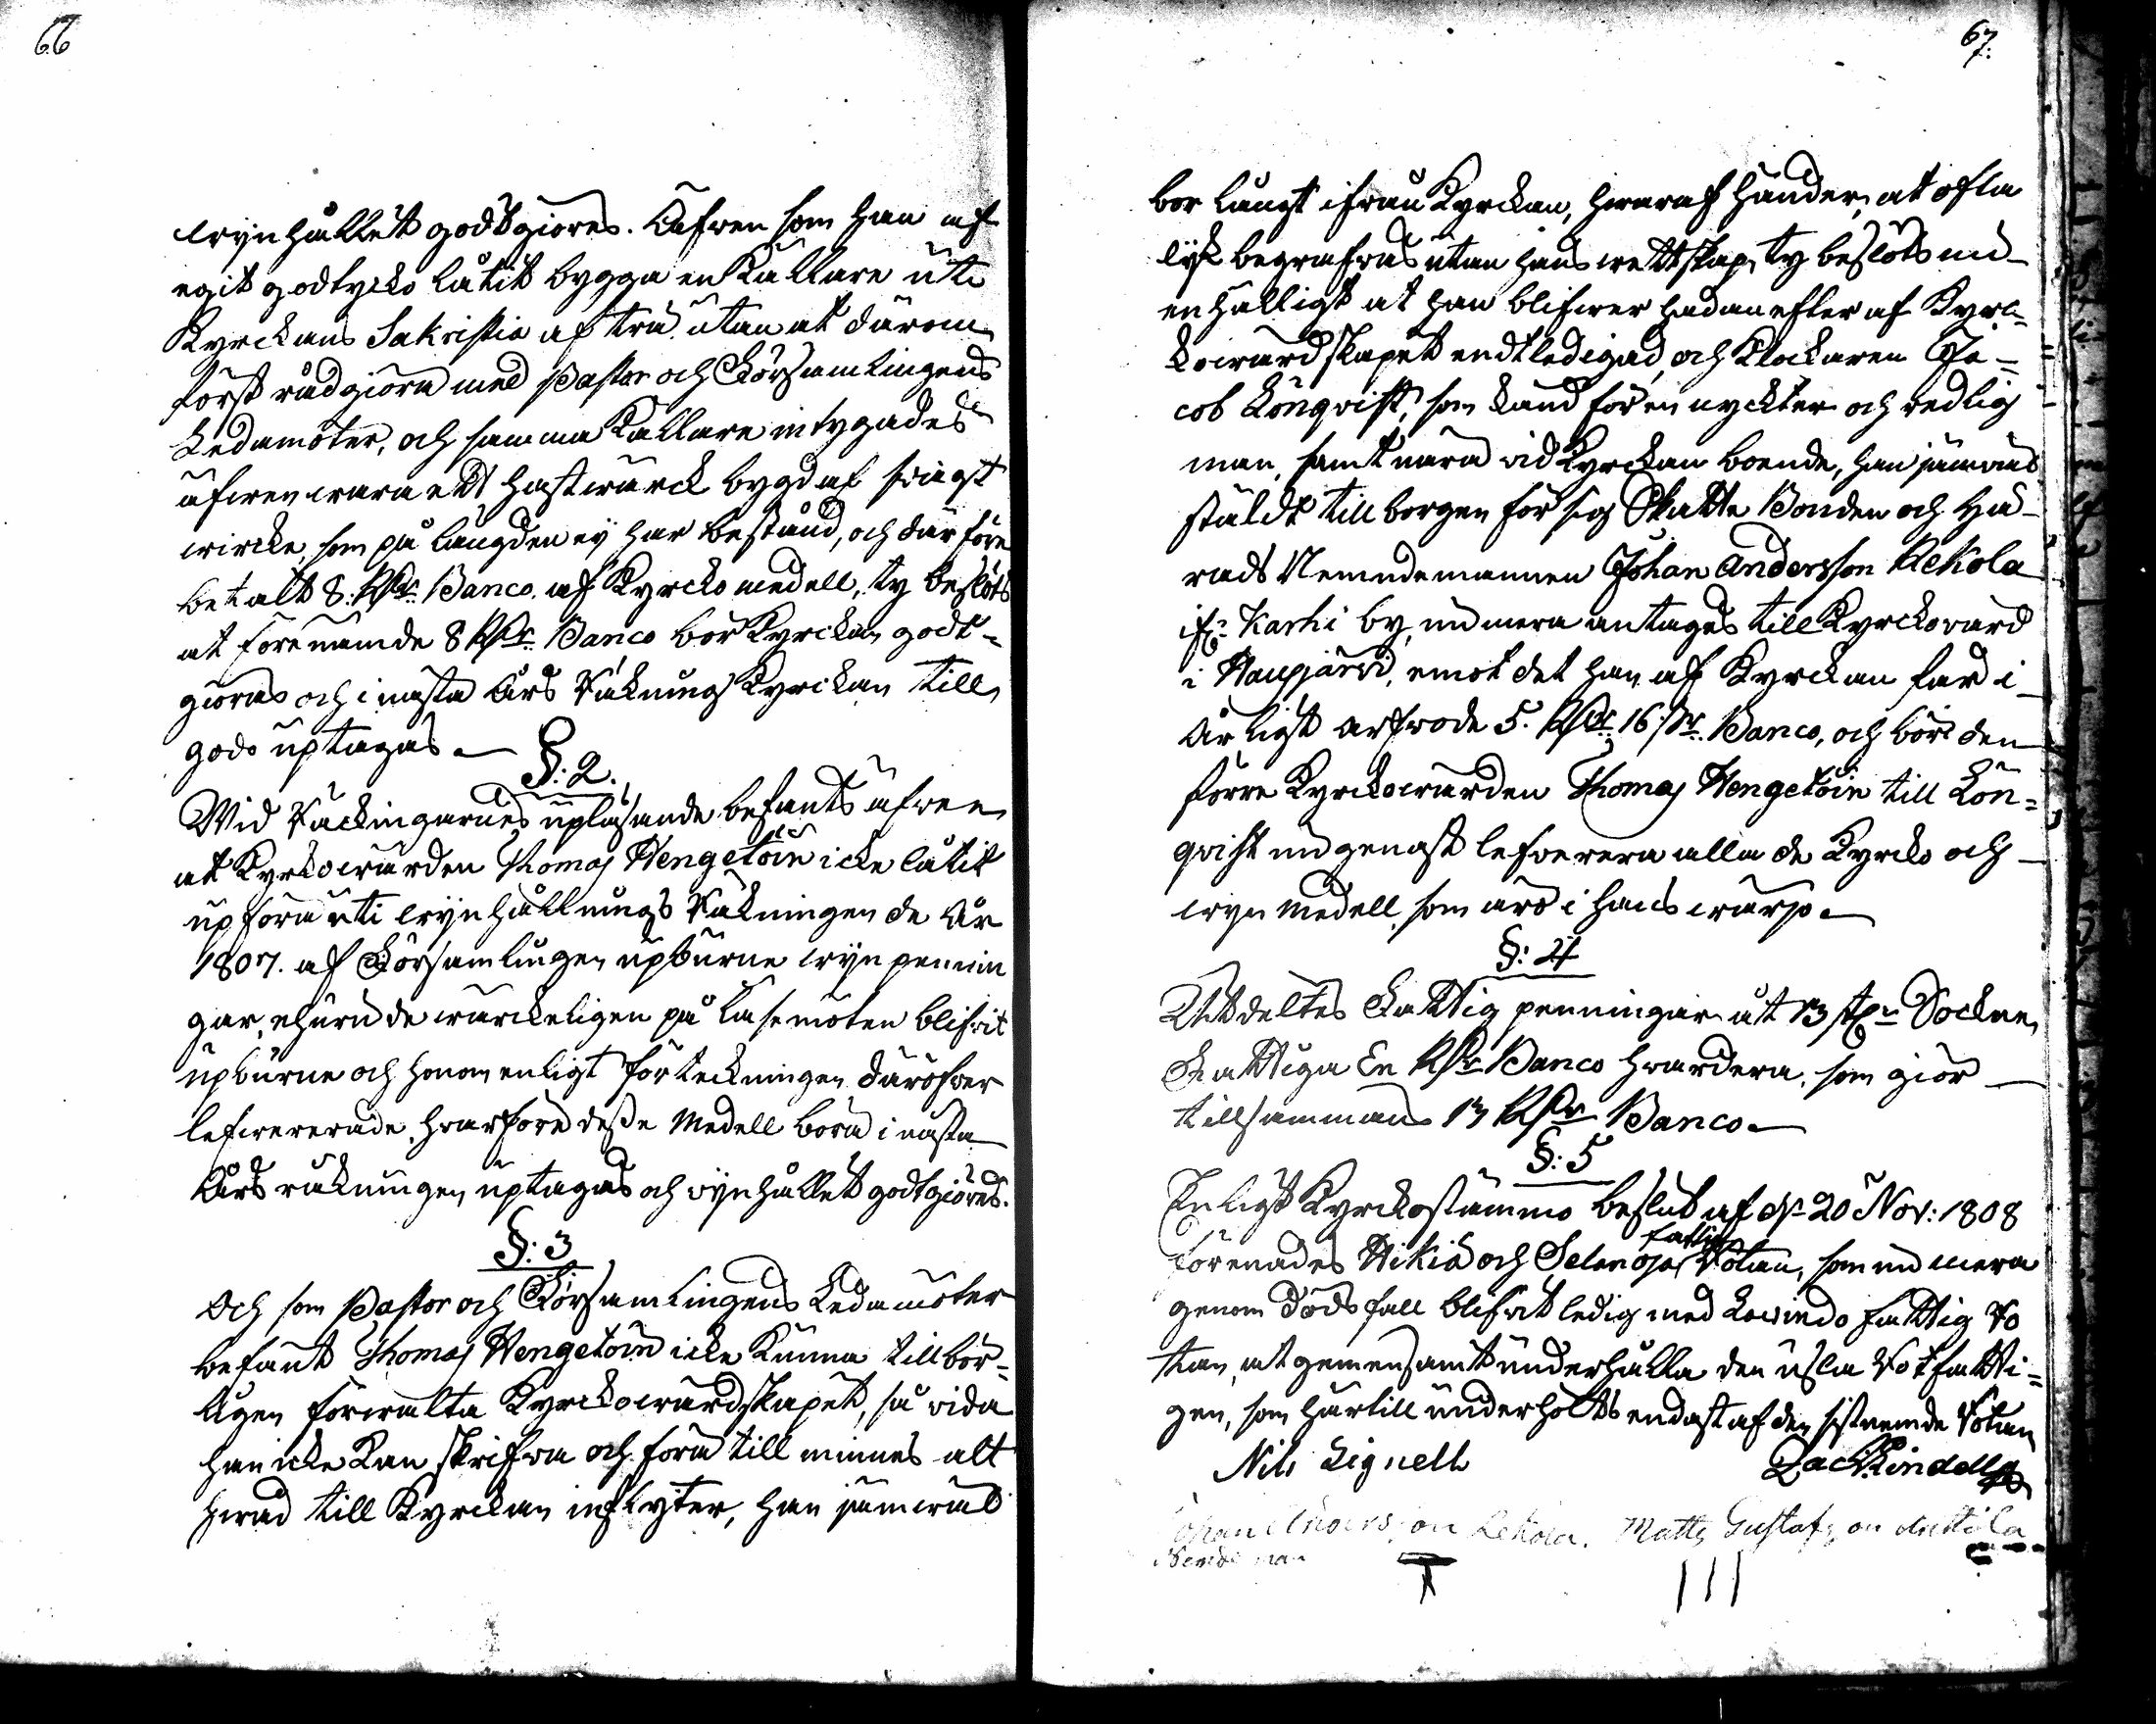 66
wijnhållet godtgiöres. Äfwen som han af
egit godtycko låtit bygga en Källare uti
Kyrckans Sakristia af trä utan at därom
först rådgiöra med Pastor och Församlingens
Ledamöter, och samma Källare intygades
äfwen wara ett hastwärck bygd af swagt
wircke, som på längden ej har bestånd, och därföre
betalt 8. Rdr Banco af Kyrcko medell, ty beslöts
at förenämde 8 Rdr Banco bör Kyrckan godt-
giöras och i nästa Års Räkning Kyrckan till
godo uptagas.
§: 2.
Wid Räckningarnes upläsande befants äfwen
at Kyrckowärden Thomas Hengetöin icke låtit
upföra uti wijnhållnings Räkningen de År
1807. af Församlingen upburne wijn pennin
gar, ehuru de wärckeligen på Läsemöten blifwit
upburne och honom enligt förteckningen däröfwer
lefwererade, hwarföre desse Medell böra i nästa
Års räkningen uptagas och wijnhållet godtgiöres.
§: 3
Och som Pastor och Församlingens Ledamöter
befant Thomas Hengetöin icke kunna tillbör-
ligen förwalta Kyrckowärdskapet, så vida
han icke kan skrifwa och föra till minnes alt
hwad till Kyrckan inflyter, han jämwäl
67.
bor långt ifrån Kyrckan, hwaraf händer, at ofta
lijk begrafwas utan hans wettskap, ty beslöts
enhälligt at han blifwer hädanefter af Kyrc-
kowärdskapet endtledigad, och Klockaren Ja-
cob Lönqvist, som känd för en nyckter och redlig
man, samt nära vid Kyrckan boende, han jämväl
stäldt till borgen för sig Skatte Bonden och Hä-
rads Nemndemannen Johan Andersson Rekola
ifr: Karhi by, nu mera antages till Kyrckovärd
i Haupjärvi, emot det han af Kyrckan får i
Årligt arfwode 5. Rdr 16 sk. Banco, och bör den
förre Kyrckowärden Thomas Hengetöin till Lön-
qvist nu genast lefwerera alla de Kyrcko och
wijn Medell som äro i hans wärjo.
§: 4
Utdeltes Fattig penningar åt 13 st:n Sockne
Fattiga En Rdr Banco hwardera, som giör
tillsammans 13 Rdr Banco.
§: 5
Enligt Kyrckostämmo beslut af d: 20 Nov: 1808
förenades Hikiä och Selänoja fattig Rotan, som nu mera
genom dödsfall blifwit ledig med Kowindo fattig Ro
tan, at gemensamt underhålla den usla Rotfatti-
gen, som härtill underholts endast af den sistnemde Rotan
Nils Lignell
Zach: Lindell
Johan Andersson Rekola. Matts Gustafsson Anttila
Nemdeman